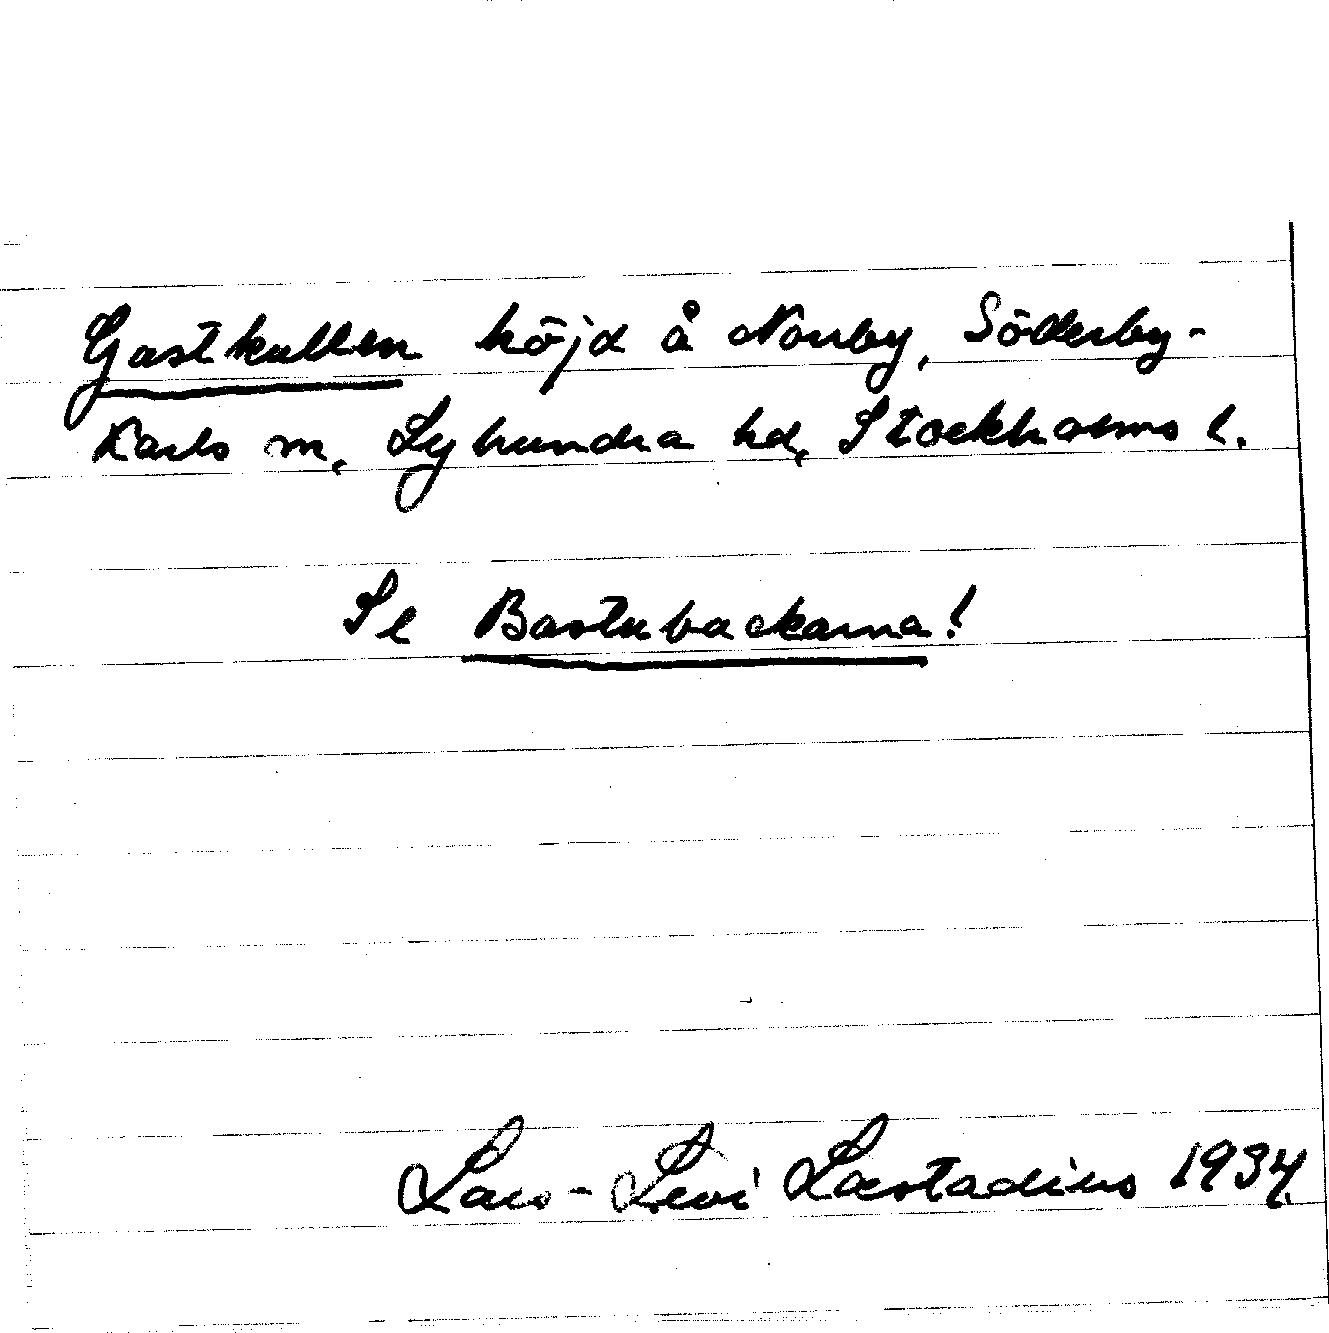 Gastkullen höjd å Norrby, Söderby-
Karls sn, Lyhundra hd, Stockholms l.
Se Bastubackarna!
Lars-Levi Læstadius 1934.